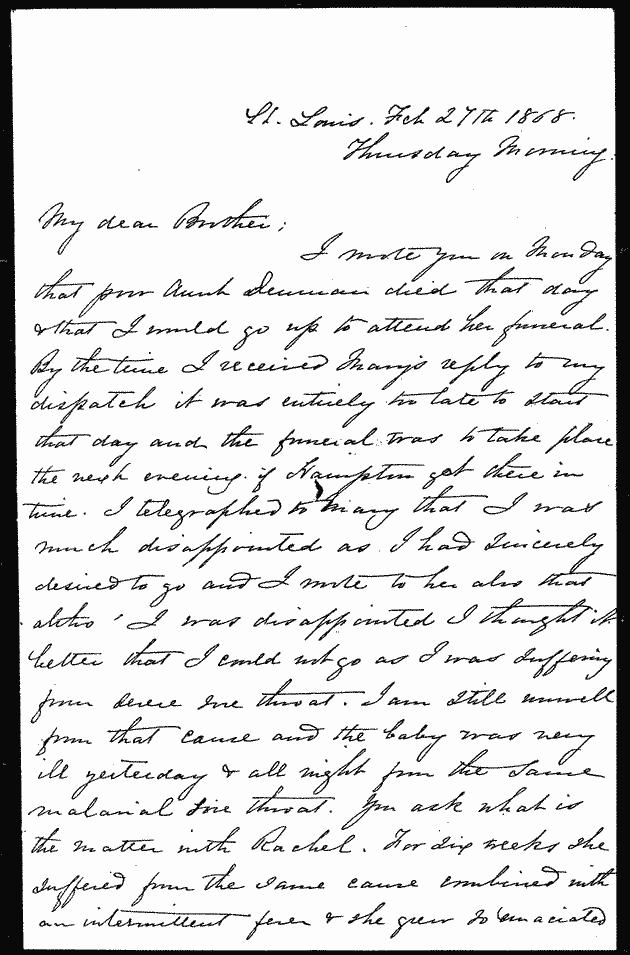 St. Louis. Feb 27th 1868.
Thursday Morning.
My dear Brother;
I wrote you on Monday
that poor Aunt Denman died that day
& that I would go up to attend her funeral.
By the time I received Mary's reply to my
dispatch it was entirely too late to start
that day and the funeral was to take place
the next evening if Hampton got there in
time. I telegraphed to Mary that I was
much disappointed as I had sincerely
desired to go and I wrote to her also that
altho' I was disappointed I thought it
better that I could not go as I was suffering
from severe sore throat. I am still unwell
from that cause and the baby was very
ill yesterday & all night from the same
malarial sore throat. You ask what is
the matter with Rachel. For six weeks she
suffered from the same cause combined with
an intermittent fever & she grew so emaciated